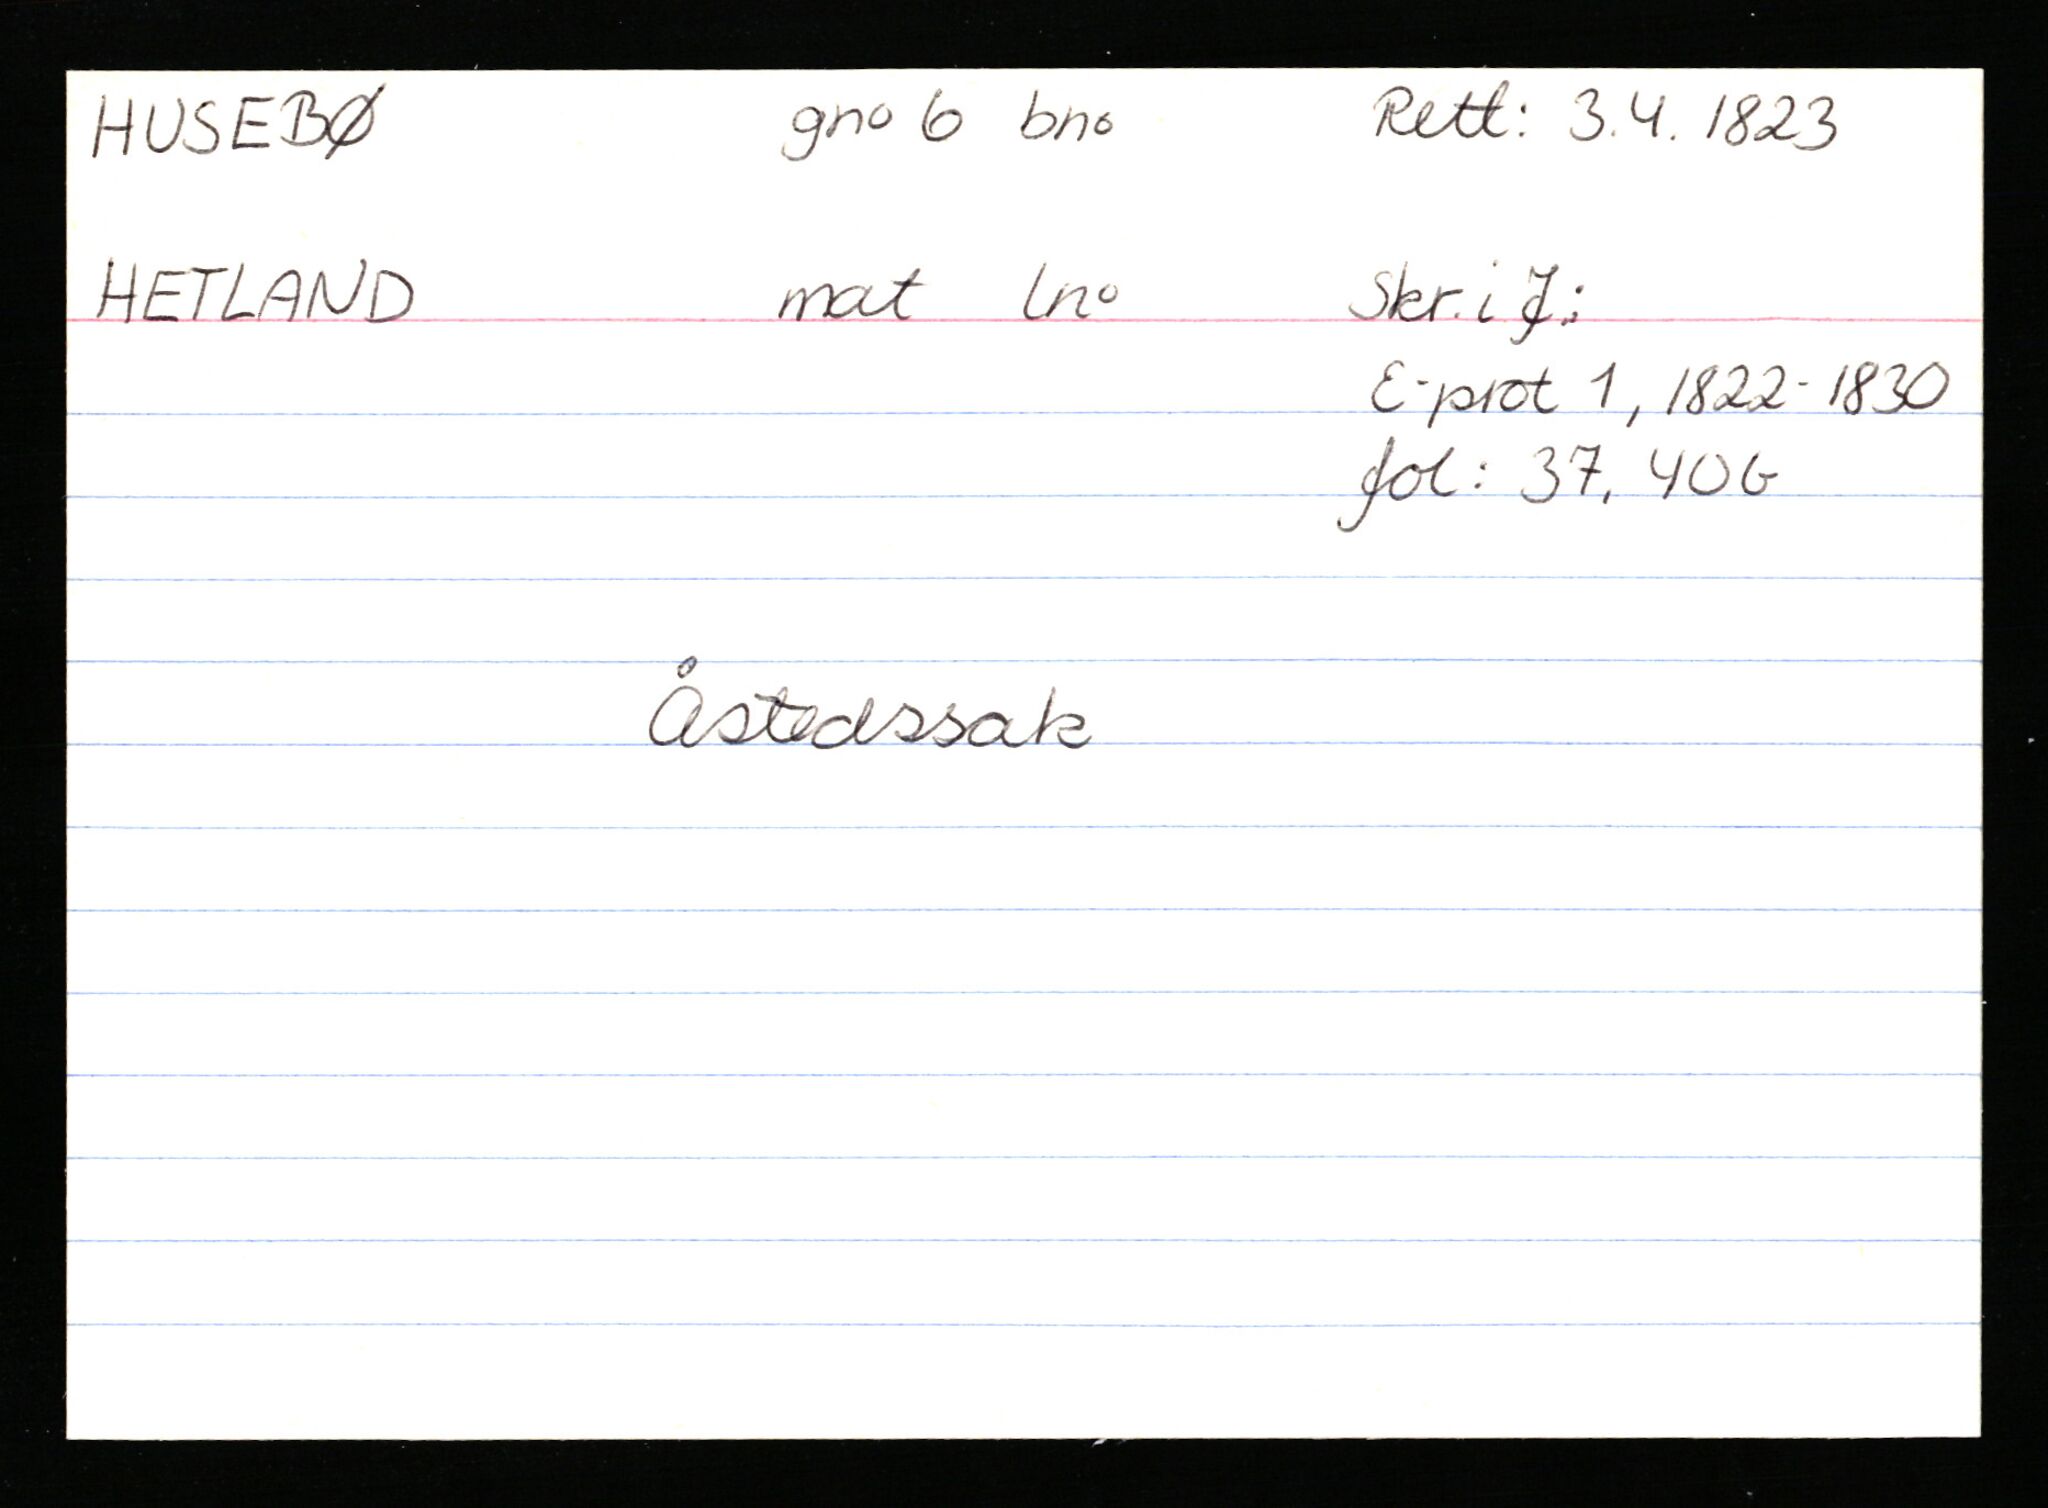 HUSEBØ gno 6 bno Rett: 3.4. 1823
HETLAND mat lno Skr. i J.:
E-prot 1, 1822-1830
fol: 37, 40b
Åstedssak